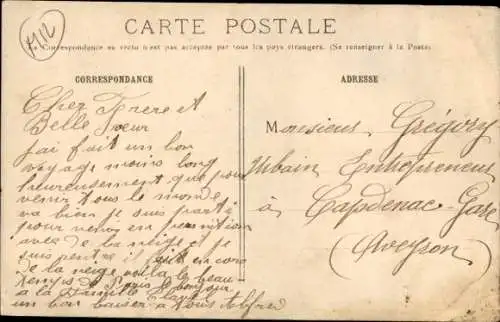 912
CARTE POSTALE
La Correspondance au verso n'est pas acceptée par tous les pays étrangers. (Se renseigner à la Poste)
CORRESPONDANCE
Cher Frere et
Belle Sœur
j'ai fait un bon
voyage moins long
heureusement que pour
venir tous le monde
va bien je suis parti
pour
avec de la neige et je
suis rentre il fait encore
de la neige voila le beau
temps de Paris le bonjour
a la Famille
un bon baiser a tous Alfred
ADRESSE
Monsieur Grégory
Urbain Entrepreneur
à Capdenac-Gare
(Aveyron)